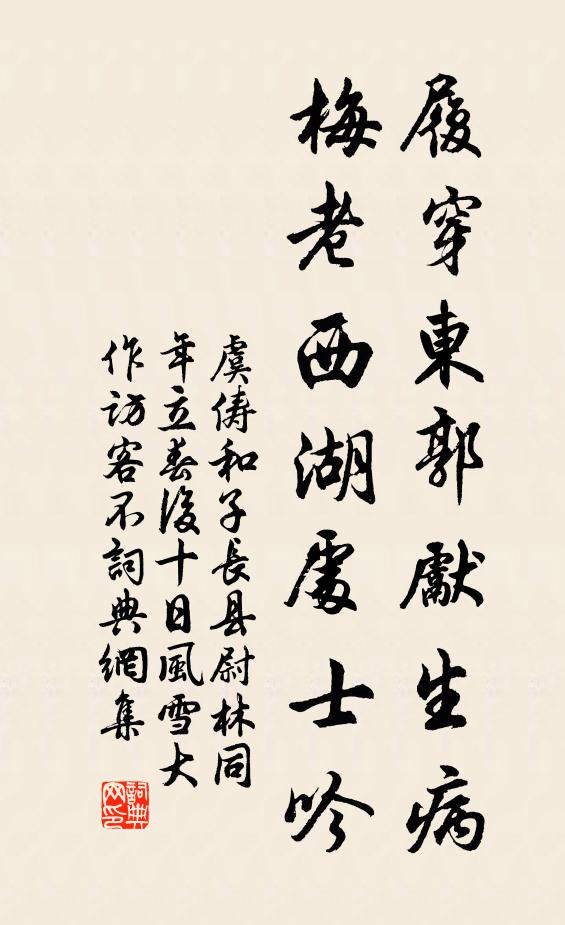 履穿東郭獻生病
梅老西湖處士吟
虞儔和子長县尉林同
年立春後十日風雪大
作訪客不詞典網集
詞典
网印